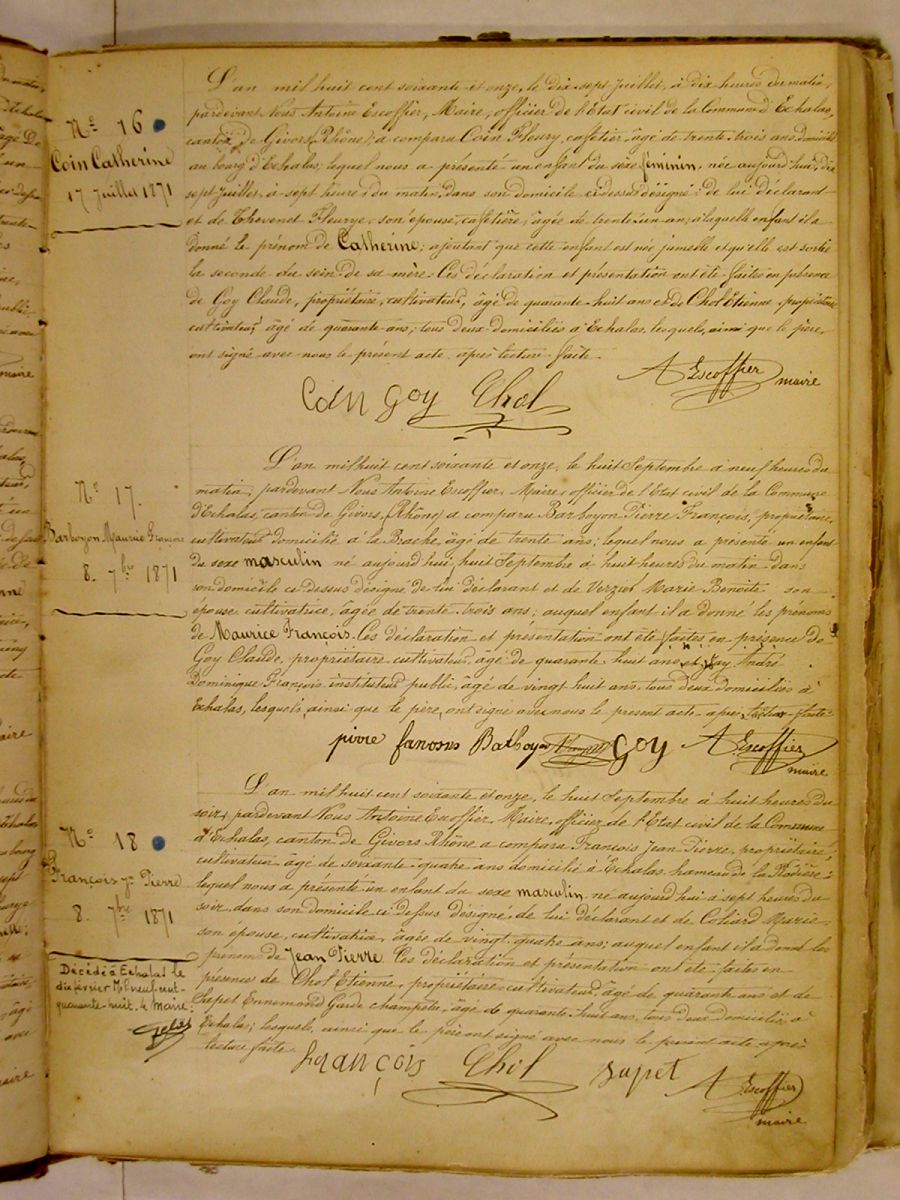 Nº 16
Coin Catherine
17 Juillet 1871
L'an mil huit cent soixante et onze, le dix-sept Juillet, à dix heures du matin,
pardevant Nous Antoine Escoffier, Maire, officier de l'Etat civil de la Commune d'Echalas,
canton de Givors (Rhône) a comparu Coin Fleury, cafetier âgé de trente-trois ans domicilié
au bourg d'Echalas, lequel nous a présenté un enfant du sexe féminin, née aujourd'hui, dix
sept Juillet, à sept heures du matin dans son domicile ci dessus désigné; de lui déclarant
et de Thevenet Fleurye, son épouse, cafetière, âgée de trente-un an, à laquelle enfant il a
donné le prénom de Catherine; ajoutant que cette enfant est née jumelle et qu'elle est sortie
la seconde du sein de sa mère. Ces déclaration et présentation ont été faites en présence
de Goy Claude, propriétaire, cultivateur, âgé de quarante-huit ans et de Chol Etienne propriétaire
cultivateur âgé de quarante ans; tous deux domiciliés à Echalas, lesquels, ainsi que le père,
ont signé avec nous le présent acte, après lecture faite.
Coin Goy Chol A Escoffier
maire
Nº 17.
Barboyon Maurice François
8. 7bre 1871
L'an mil huit cent soixante et onze, le huit Septembre à neuf heures du
matin, pardevant Nous Antoine Escoffier, Maire, officier de l'Etat civil de la Commune
d'Echalas, canton de Givors, (Rhône) a comparu Barboyon Pierre François, propriétaire,
cultivateur domicilié à la Bache, âgé de trente ans; lequel nous a présenté un enfant
du sexe masculin né aujourd'hui, huit Septembre à huit heures du matin dans
son domicile ci-dessus désigné de lui déclarant et de Verzier Marie Benoite son
épouse, cultivatrice, âgée de trente-trois ans; auquel enfant il a donné les prénoms
de Maurice François. Ces déclaration et présentation ont été faites en présence de
Goy Claude, propriétaire cultivateur, âgé de quarante huit ans et André
Dominique François instituteur public, âgé de vingt huit ans, tous deux domiciliés à
Echalas, lesquels, ainsi que le père, ont signé avec nous le présent acte après lecture faite
pivre fanosus Barboyon Goy A Escoffier
maire
Nº 18
François Jn Pierre
8. 7bre 1871
L'an mil huit cent soixante et onze, le huit Septembre à huit heures du
soir, pardevant Nous Antoine Escoffier, Maire, officier de l'Etat civil de la Commune
d'Echalas, canton de Givors Rhône a comparu François Jean Pierre, propriétaire,
cultivateur âgé de soixante-quatre ans domicilié à Echalas hameau de la
lequel nous a présenté un enfant du sexe masculin, né aujourd'hui à sept heures du
soir, dans son domicile ci dessus désigné, de lui déclarant et de Coliard Marie
son épouse, cultivatrice, âgée de vingt quatre ans; auquel enfant il a donné les
prénoms de Jean Pierre. Ces déclaration et présentation ont été faites en
présence de Chol Etienne, propriétaire cultivateur, âgé de quarante ans et de
Supet Ennemond Garde champêtre, âgé de quarante huit ans, tous deux domiciliés à
Echalas; lesquels, ainsi que le père ont signé avec nous le présent acte après
lecture faite
Décédé à Echalas le
dix février Mil neuf cent
quarante-huit. le Maire:
François Chol Supet A Escoffier
maire